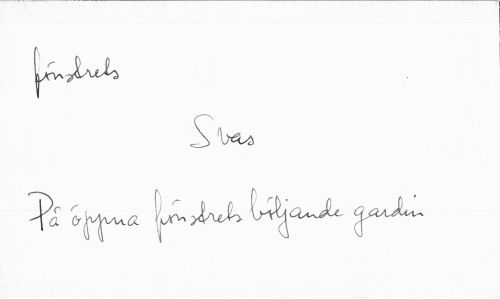 fönstrets
Svas
På öppna fönstrets böljande gardin